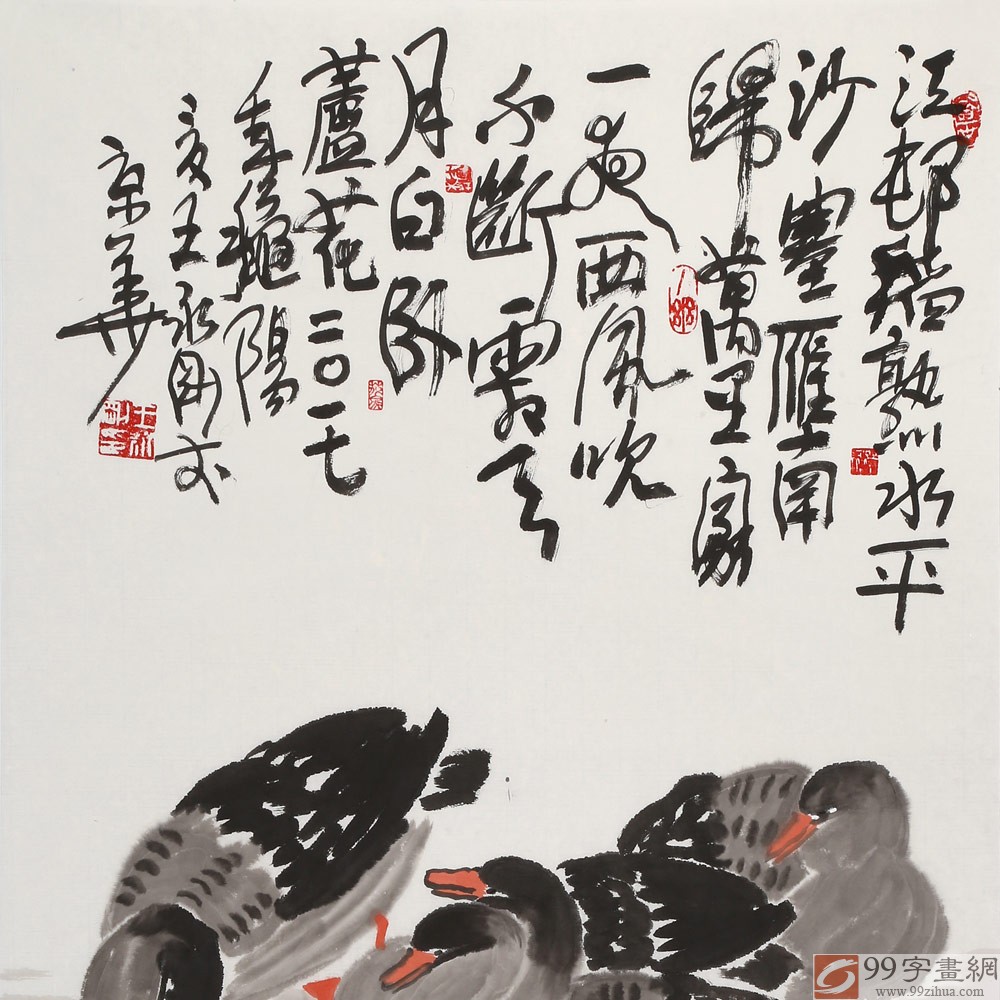 江邨稻熟水平
沙豐雁南
歸萬里家
一夜西風吹
不斷霜天
月白卧
蘆花二〇一七
年龝陽
王永剛於
京華
99字畫網
www.99zihua.com